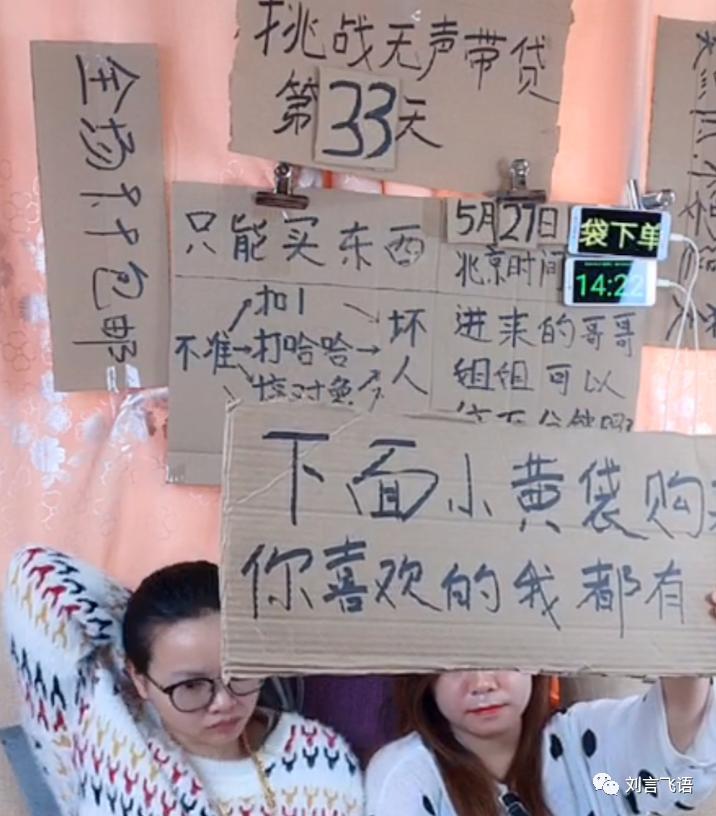 挑战无声带贷
第33天
全场9.9包邮
只能买东西
5月27日
北京时间
袋下单
14:22
扣1
不准→打哈哈→坏人
进来的哥哥
姐姐可以
下面小黄袋购
你喜欢的我都有
刘言飞语